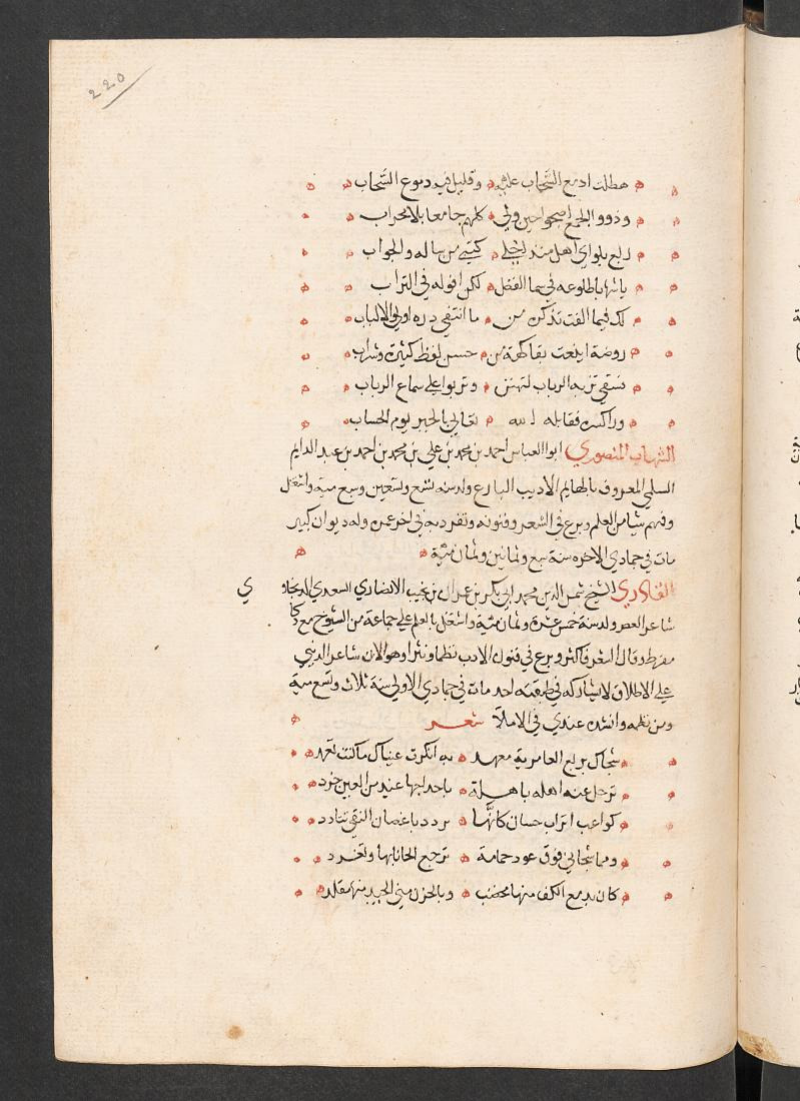 220
هطلت ادمع السحاب عليه وقليل فيه دموع السحاب
وذووا الجمع اصبحوا حين ولى كلهم جامعا بلا محراب
لك فيما الفت تذكرة من ما انتقى دره اولو الالباب
روضة اينعت بفاكهة من حسن لفظ كثيرة وشراب
تعالى بالخير يوم الحساب
الشهاب المنصوري ابوا العباس احمد بن محمد بن علي بن محمد بن احمد بن عبد الدايم
السلمي المعروف بالهايم الاديب البارع ولد سنه تسع وتسعين وسبع مية واشتغل
وفهم شيا من العلم وبرع في الشعر وفنونه وتفرد به في اخر عمره وله ديوان كبير
مات في جمادي الاخره سنة سبع وثمانين وثمان مئية
القادري الشيخ شمس الدين محمد ابي بكر بن عمر ابن نجيب الانصاري السعدي الدنجاوي
شاعر العصر ولد سنة خمس عشرة وثمان مئية واشتغل بالعلم على جماعة من الشيوخ مع ذكا
مفرط وقال الشعر فاكثر وبرع في فنون الادب نظما ونثرا وهو الان شاعر الدنيي
على الاطلاق لا يشاركه في طبقته احد مات في جمادي الاولى سنة ثلاث وتسع مية
ومن نظمه وانشده عندي في الاملآ شعر
شجاك بربع العامرية معهد به انكرت عيناك ما كنت تعهد
ترحل عنه اهله باهلة باحداجها عيد من العين خرد
كواعب اتراب حسان كانها
ومما شجاني فوق عود حمامة ترجع الحانا بها وتغرد
كان بدمع الكف منها مخضب وبالحزن مني الجيد منها مقلد